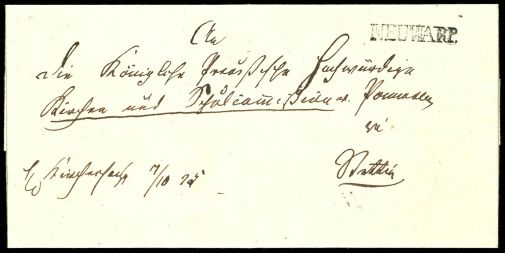 NEUWARP.
An
die Königliche Preußische Hochwürdige
Kirchen und Schulcommission v. Pommern
zu
Stettin
7/10 25